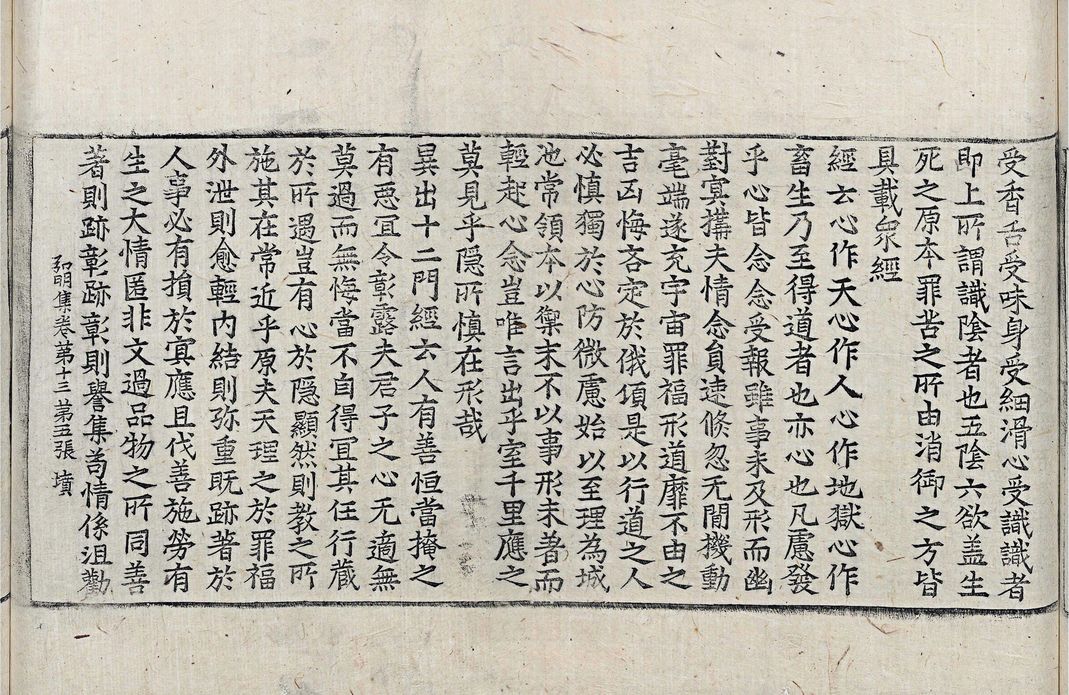 受香舌受味身受細滑心受識識者
即上所謂識陰者也五陰六欲盖生
死之原本罪苦之所由消御之方皆
具載衆經
經云心作天心作人心作地獄心作
畜生乃至得道者也亦心也凡慮發
乎心皆念念受報雖事未及形而幽
對冥搆夫情念負速倏忽无閒機動
毫端遂充宇宙罪福形道靡不由之
吉凶悔吝定於俄頃是以行道之人
必慎獨於心防微慮始以至理為城
池常領本以禦末不以事形未著而
輕起心念豈唯言出乎室千里應之
莫見乎隱所慎在形哉
異出十二門經云人有善恒當掩之
有惡冝令彰露夫君子之心无適無
莫過而無悔當不自得冝其任行藏
於所遇豈有心於隱顯然則教之所
施其在常近乎原夫天理之於罪福
外泄則愈輕內結則弥重既跡著於
人事必有損於冥應且伐善施勞有
生之大情匿非文過品物之所同善
著則跡彰跡彰則譽集苟情係沮勸
弘明集卷第十三 第五張 墳